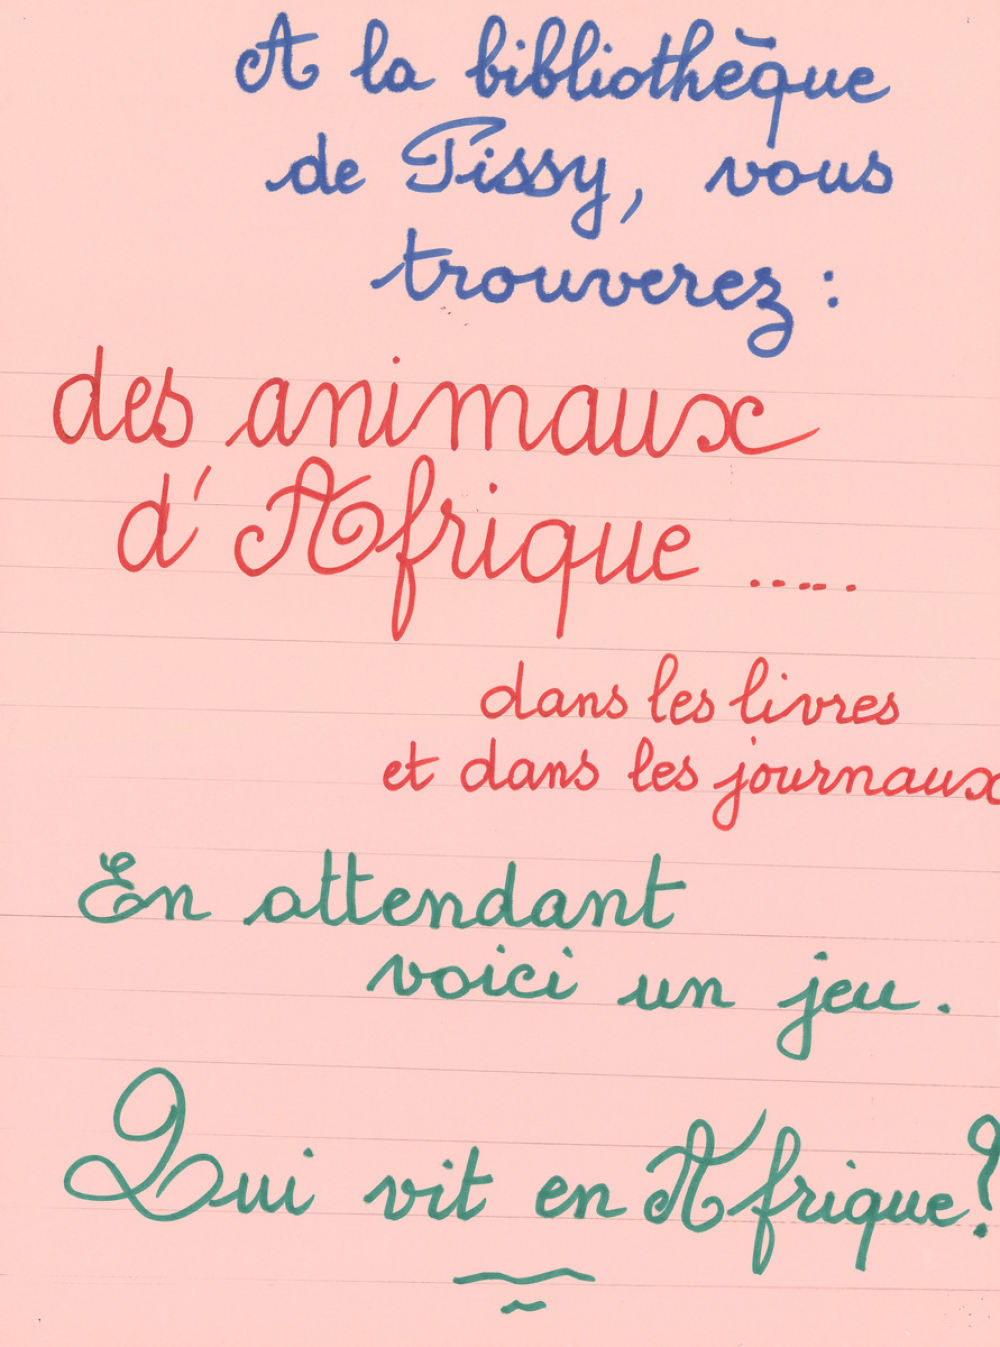 A la bibliothèque
de Pissy, vous
trouverez :
des animaux
d'Afrique .....
dans les livres
et dans les journaux
En attendant
voici un jeu.
Qui vit en Afrique?